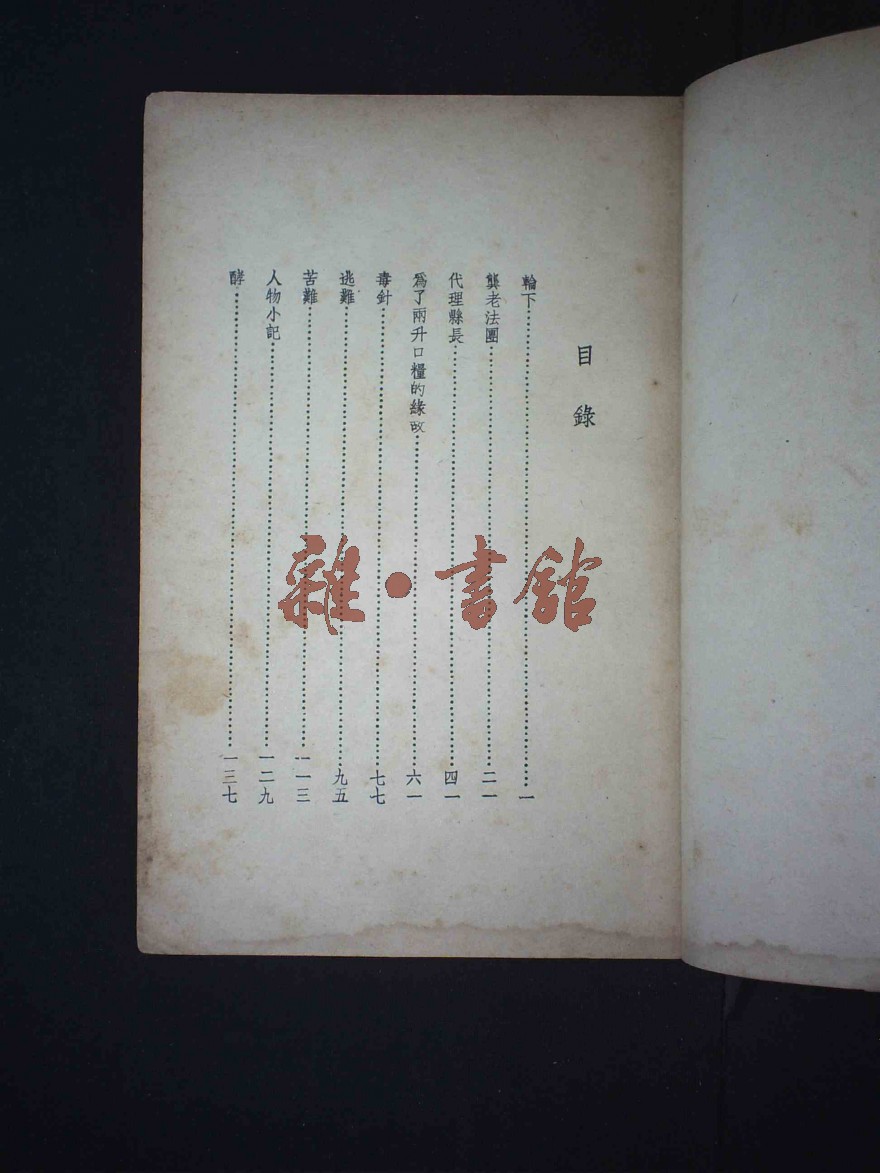 目錄
輪下⋯⋯一
龔老法團⋯⋯二一
代理縣長⋯⋯四一
爲了兩升口糧的緣故⋯⋯六一
毒針⋯⋯七七
逃難⋯⋯九五
苦難⋯⋯一一三
人物小記⋯⋯一二九
酵⋯⋯一三七
雜·書館